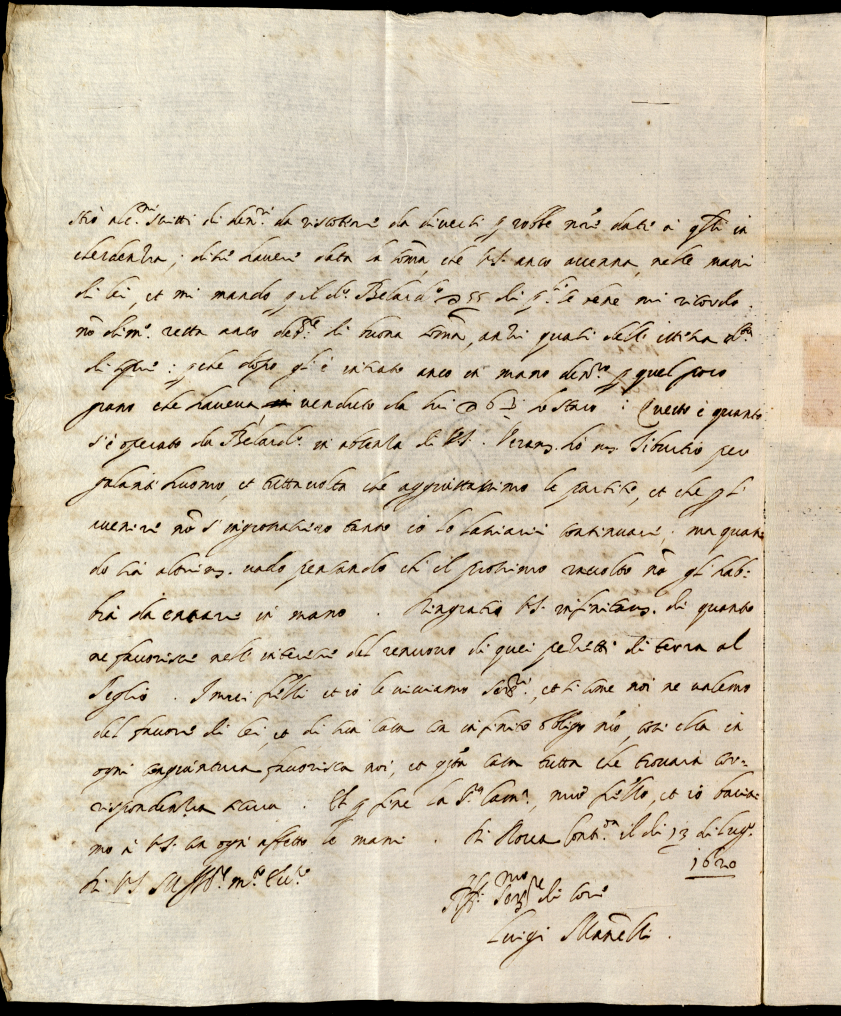 di den.ri da riscotere da diversi p robbe nre date à qsti in
credenza; dice haver data la soma, che V.S. anco accenna, nelle mani
di lei, et mi mandò p il d.o Belard.o 55 di q.li le rene mi ricordo
nõ dim.o resta anco deb.re di buona soma, anzi quasi dell' istessa
di pr.a: pche dopo gl' è intrato anco in mano den.ro p quel poco
grano che haveva venduto da lui lo staro: Questo è quanto
s'è operato da Belard.o in absenza di V.S. Veram. hò ms. Tiburtio per
galant' huomo, et tuttavolta che aggiustassimo le partite, et che p l'
avenire nõ s'ingrossassero tanto io lo lassarei continuare; ma quan-
do sia altrim. vado pensando ch' il prossimo raccolto nõ gl' hab-
bia da entrare in mano. Ringratio V.S. infinitam. di quanto
ne favorisce nell' interesse del renuovo di quei pezzetti di terra al
Seglio. I miei frelli et io le viviamo ser.ri, et si come noi ne valemo
del favore di lei, et di sua casa con infinito obligo nro, così ella in
ogni congiuntura favorisca noi, et qsta casa tutta che trovarà cor-
rispondenza. Et p fine la S.ra Cam.a, mio frello, et io bacia-
mo à V.S. con ogni affetto le mani. Di Rocca Cont.da il dì 13 di Lug.o
1620
Di V.S. m.to
Aff.mo Ser.re di core
Luigi Manelli.